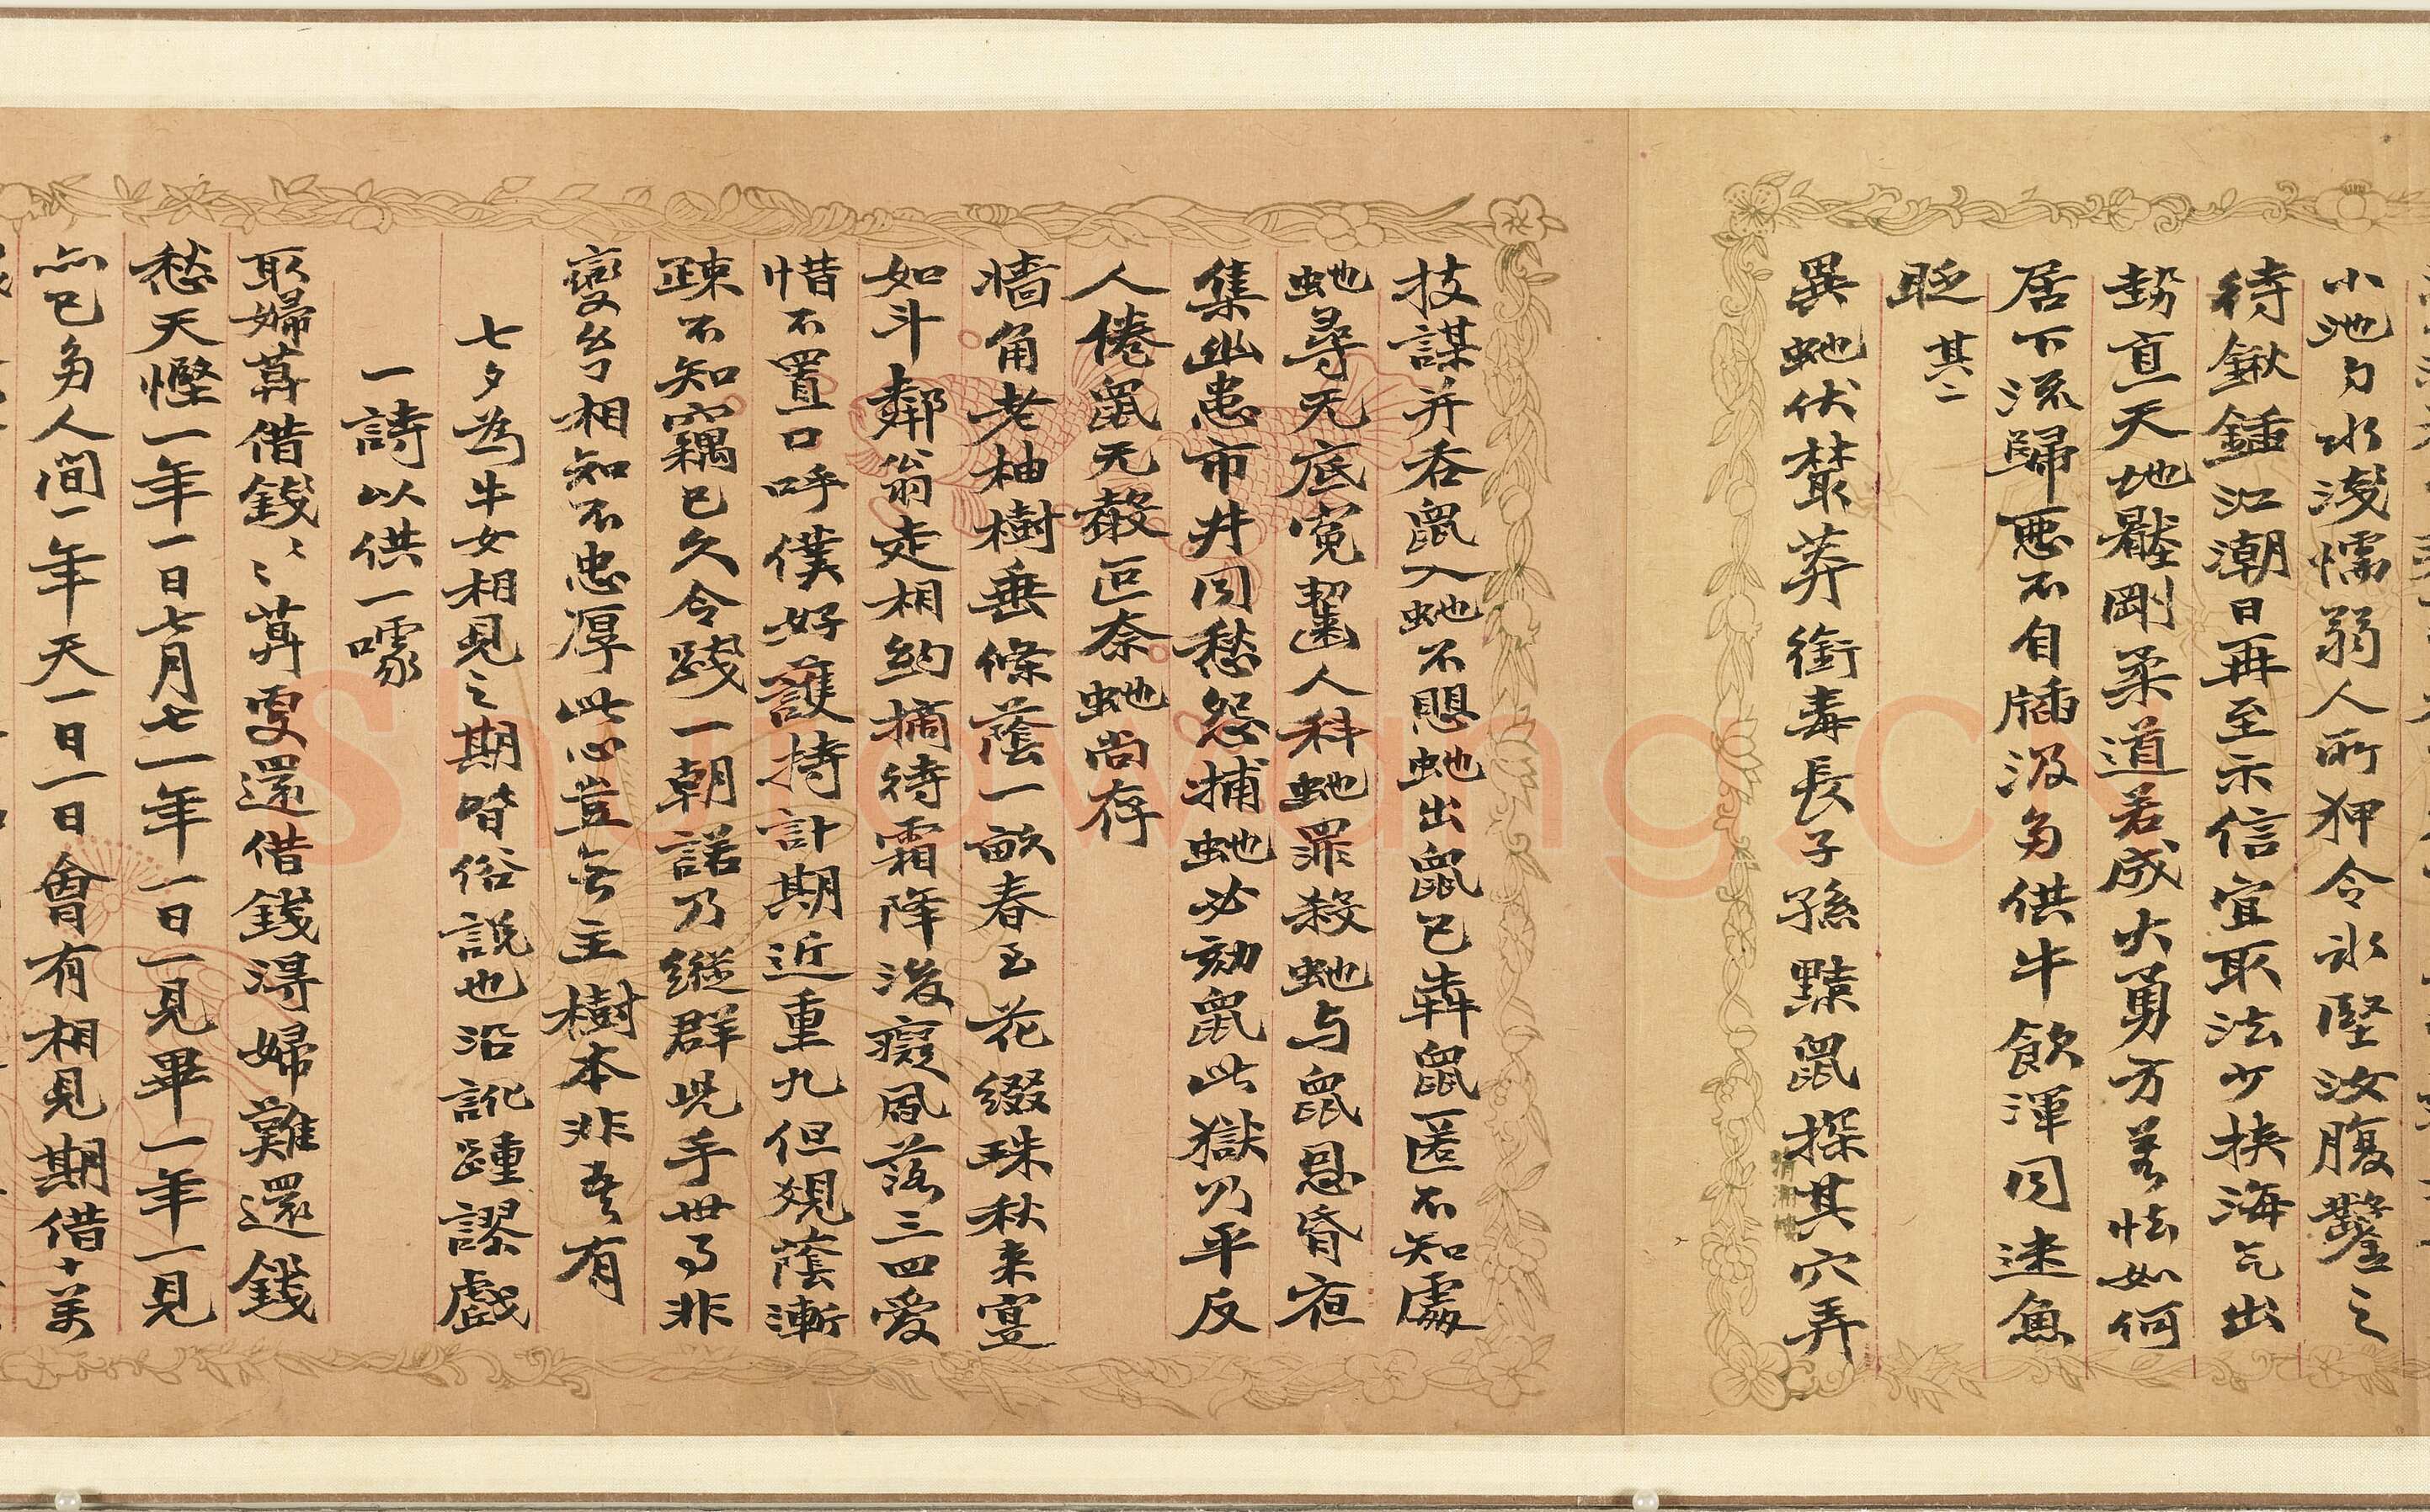 小池勺水淺懦弱人所狎令水堅汝腹鑿之
待鍬鍤江潮日再至示信宜取法少挾海气出
勢亘天地壓剛柔道若成大勇方羞怯如何
居下流歸惡不自牐汲多供牛飲渾同逮魚
眨 其二
異虵伏叢莽銜毒長子孫黠鼠探其穴弄
技謀并吞鼠入虵不慁虵出鼠已犇鼠匿不知處
虵尋无底冤齧人科虵罪殺虵与鼠恩昏夜
集幽患市井同愁怨捕虵必劾鼠此獄乃平反
人倦鼠无聲叵奈虵尚存
牆角老柚樹垂條蔭一畝春玉花綴珠秋来寔
如斗鄰翁走相約摘待霜降後癡風落三四愛
惜不置口呼僕好護持計期近重九但覌蔭漸
疎不知竊已久令踐一朝諾乃縱群児手世事非
變兮相知不忠厚此心豈無主樹本非吾有
七夕為牛女相見之期昔俗説也沿訛踵謬戲
一詩以供一噱
取婦莫借錢〻〻莫更還借錢得婦難還錢
愁天慳一年一日七月七一年一日一見畢一年一見
亦已多人間一年天一日一日會有相見期借十萬
Shuowang.CN